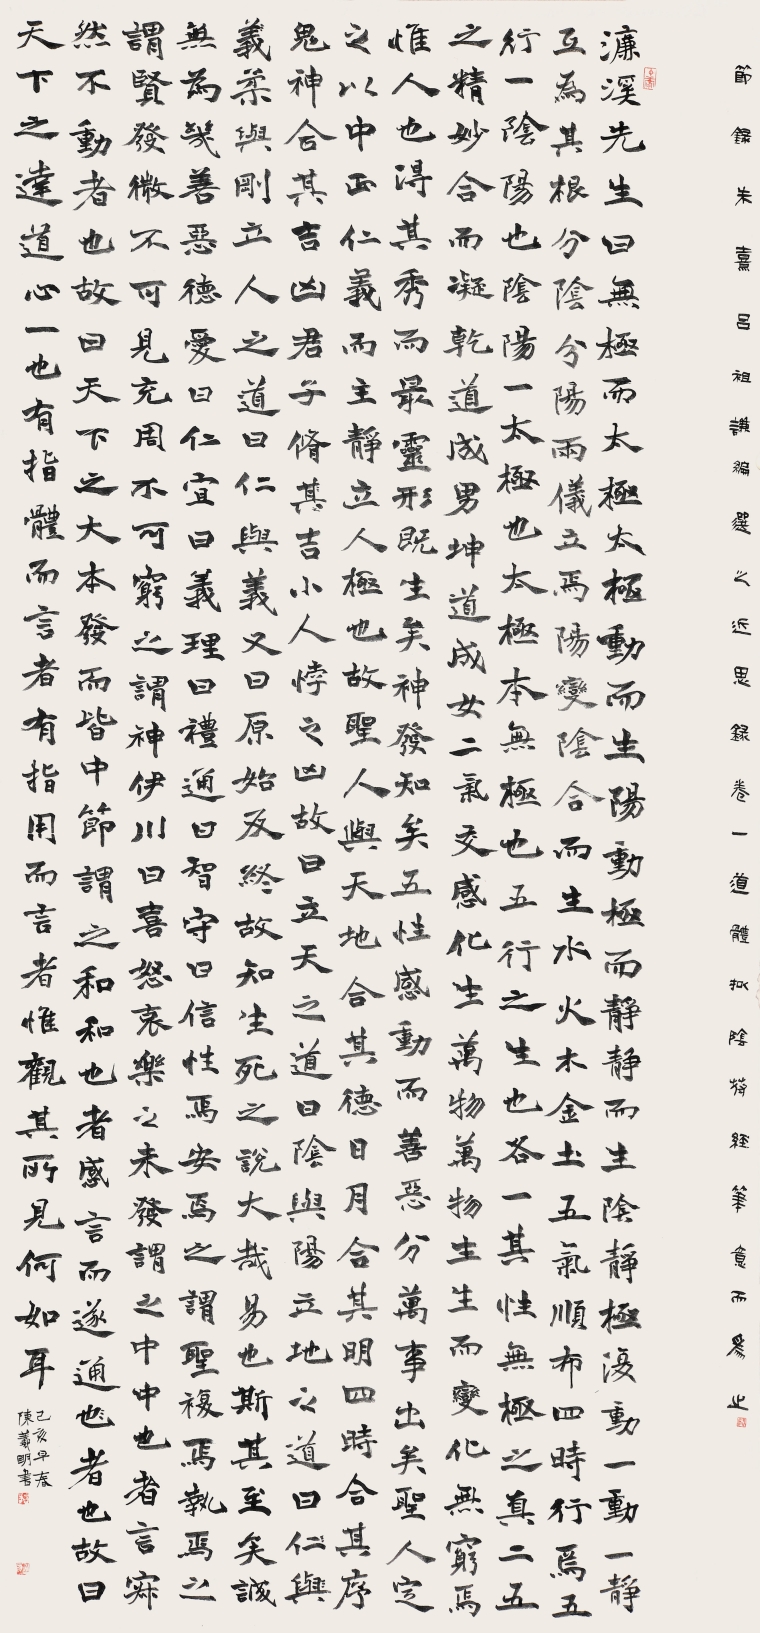 節錄朱熹呂祖謙編選之近思錄卷一道體拟陰符經筆意而爲之
濂溪先生曰無極而太極太極動而生陽動極而靜靜而生陰靜極復動一動一靜
互為其根分陰分陽兩儀立焉陽變陰合而生水火木金土五氣順布四時行焉五
行一陰陽也陰陽一太極也太極本無極也五行之生也各一其性無極之真二五
之精妙合而凝乾道成男坤道成女二氣交感化生萬物萬物生生而變化無窮焉
惟人也得其秀而最靈形既生矣神發知矣五性感動而善惡分萬事出矣聖人定
之以中正仁義而主靜立人極也故聖人與天地合其德日月合其明四時合其序
鬼神合其吉凶君子脩其吉小人悖之凶故曰立天之道曰陰與陽立地之道曰仁與
義柔與剛立人之道曰仁與義又曰原始反終故知生死之說大哉易也斯其至矣誠
無為幾善惡德愛曰仁宜曰義理曰禮通曰智守曰信性焉安焉之謂聖複焉執焉之
謂賢發微不可見充周不可窮之謂神伊川曰喜怒哀樂之未發謂之中中也者言寂
然不動者也故曰天下之大本發而皆中節謂之和和也者感言而遂通也者也故曰
天下之達道心一也有指體而言者有指用而言者惟觀其所見何如耳
己亥早春
陳義明書